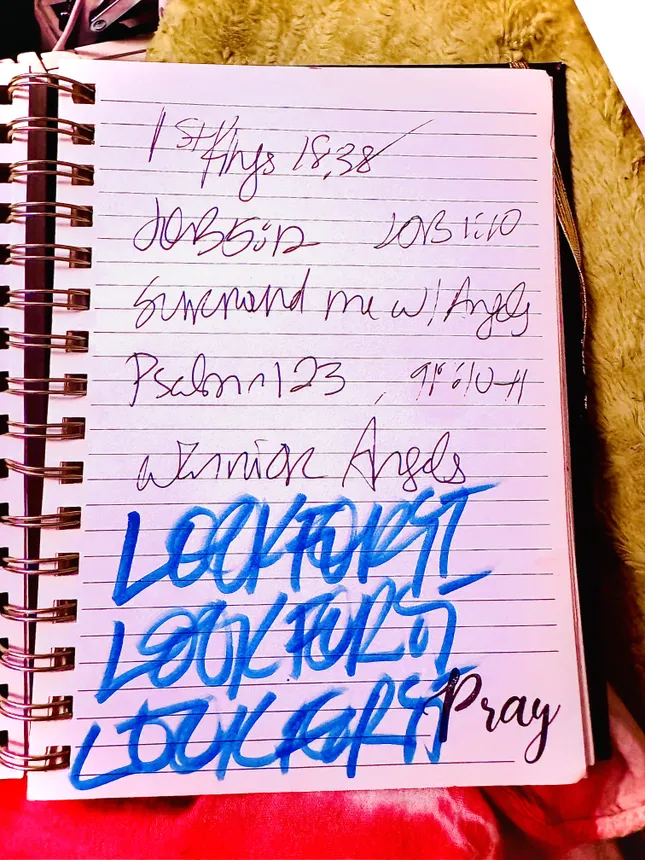 1st Kings 18,38
JOB 5:12 JOB 1:10
Surround me w/ Angels
Psalm 123, 91:10-11
Warrior Angels
LOOK FOR
LOOK FOR
LOOK FOR
Pray